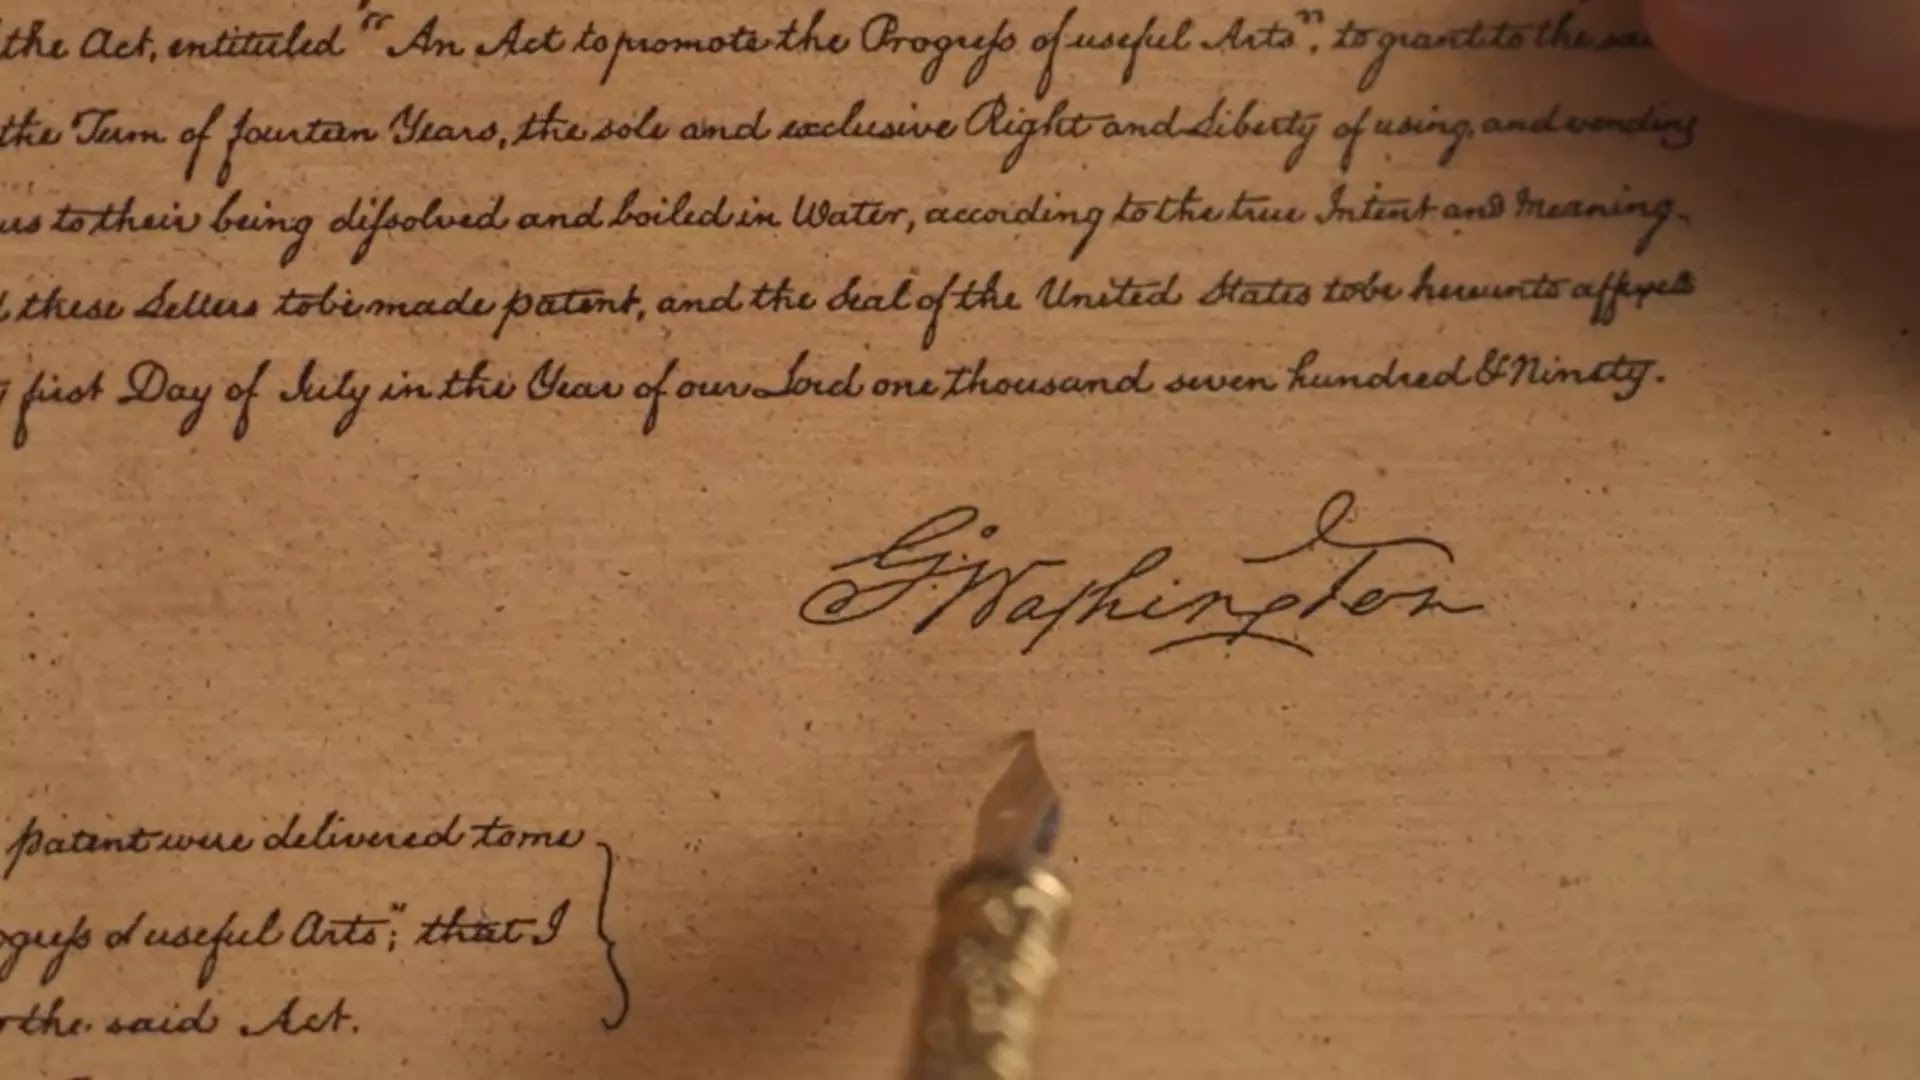 the Act, entituled "An Act to promote the Progreſs of useful Arts", to grant to the
the Term of fourteen Years, the sole and exclusive Right and Liberty of using, and vending
to their being diſsolved and boiled in Water, according to the true Intent and Meaning
these Letters to be made patent, and the Seal of the United States to be hereunto affixed
first Day of July in the Year of our Lord one thousand seven hundred & Ninety.
G:Washington
patent were delivered to me
of useful Arts"; that I
the said Act.